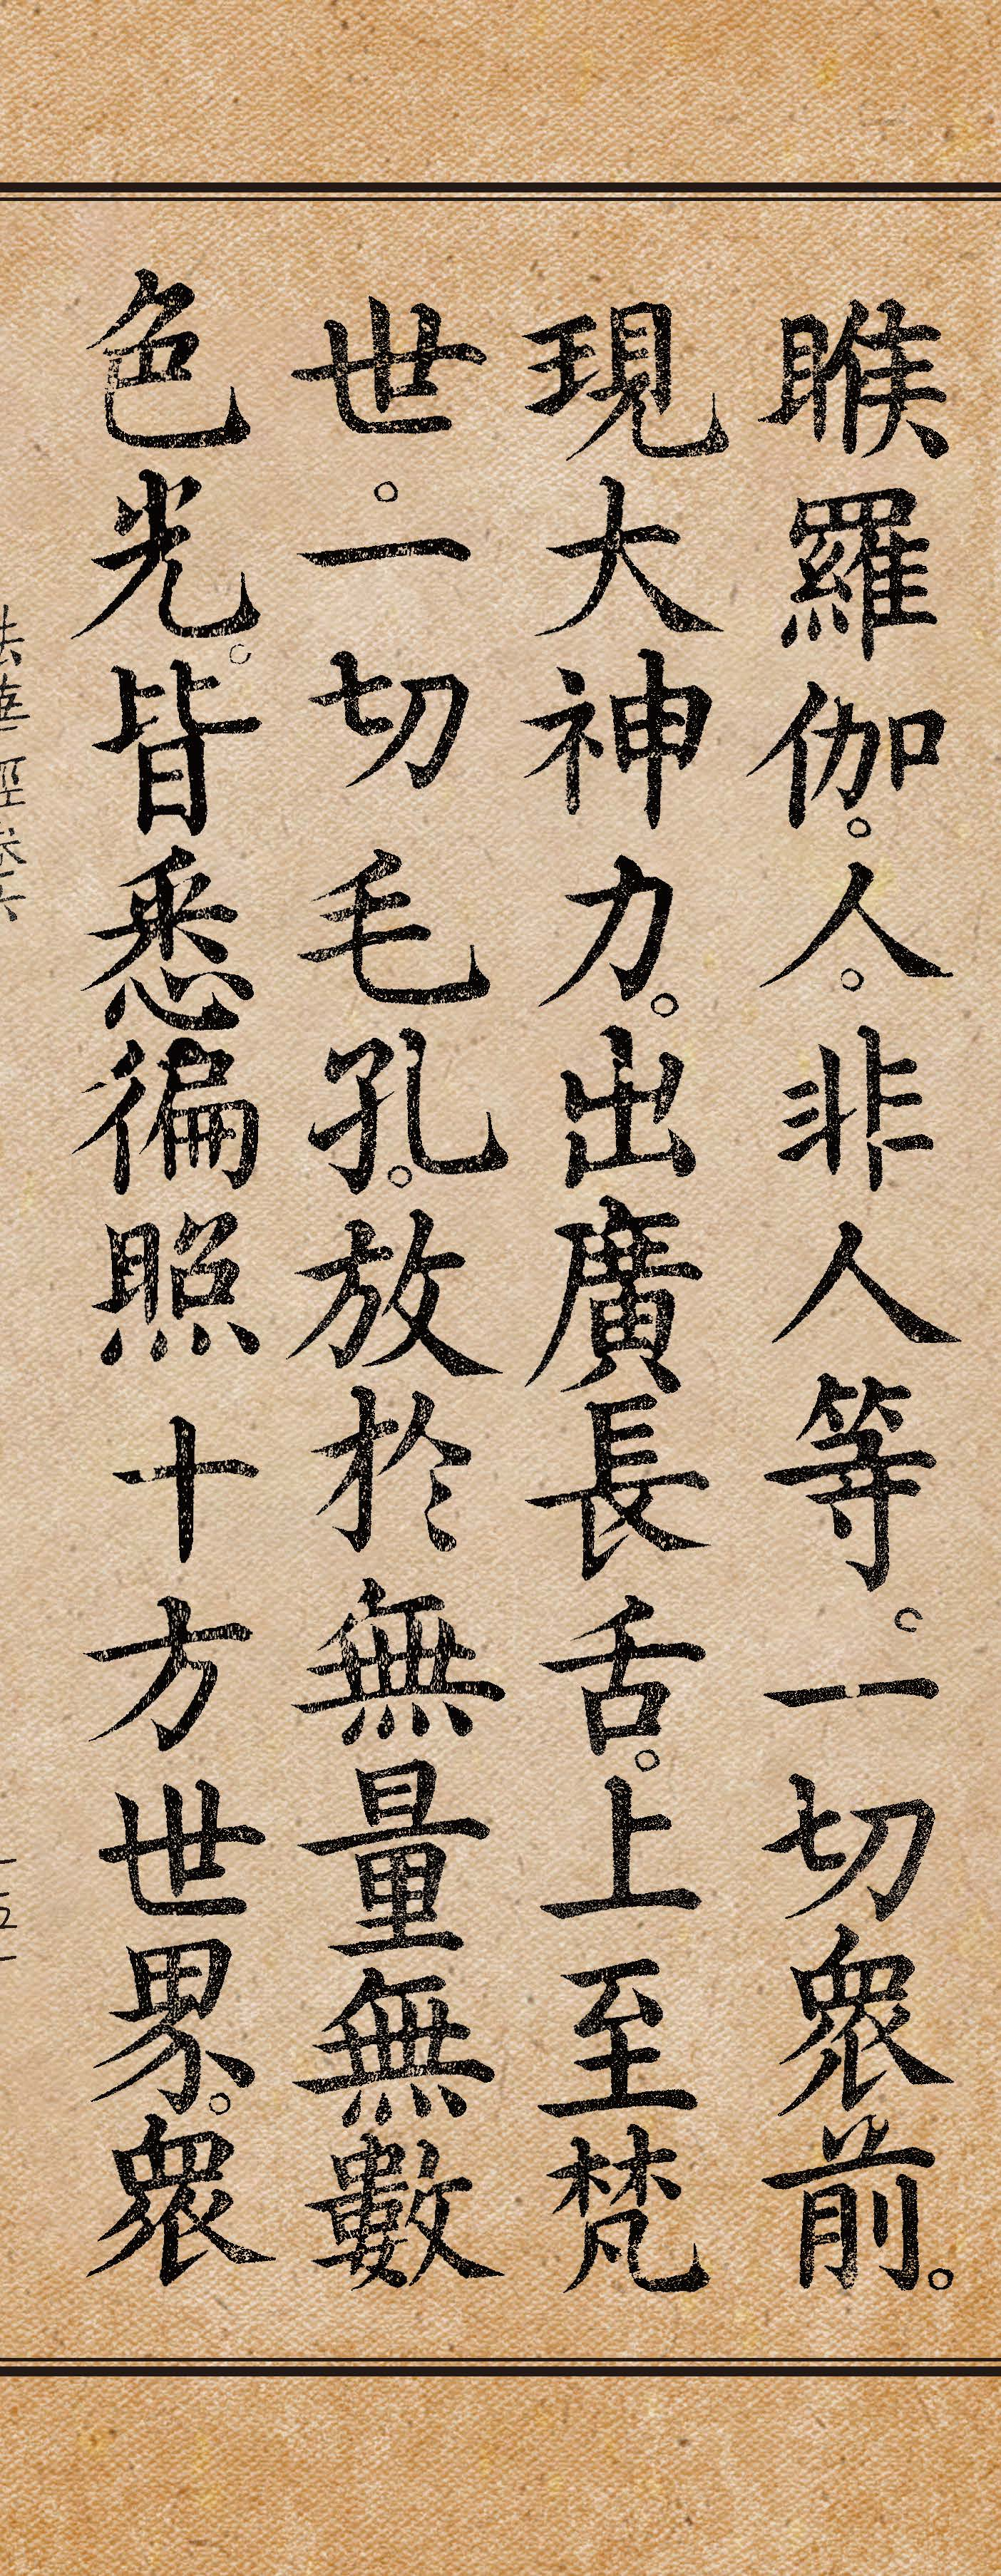 睺羅伽。人。非人等。一切衆前。
現大神力。出廣長舌。上至梵
世。一切毛孔。放於無量無數
色光。皆悉徧照十方世界。衆
法華經卷六